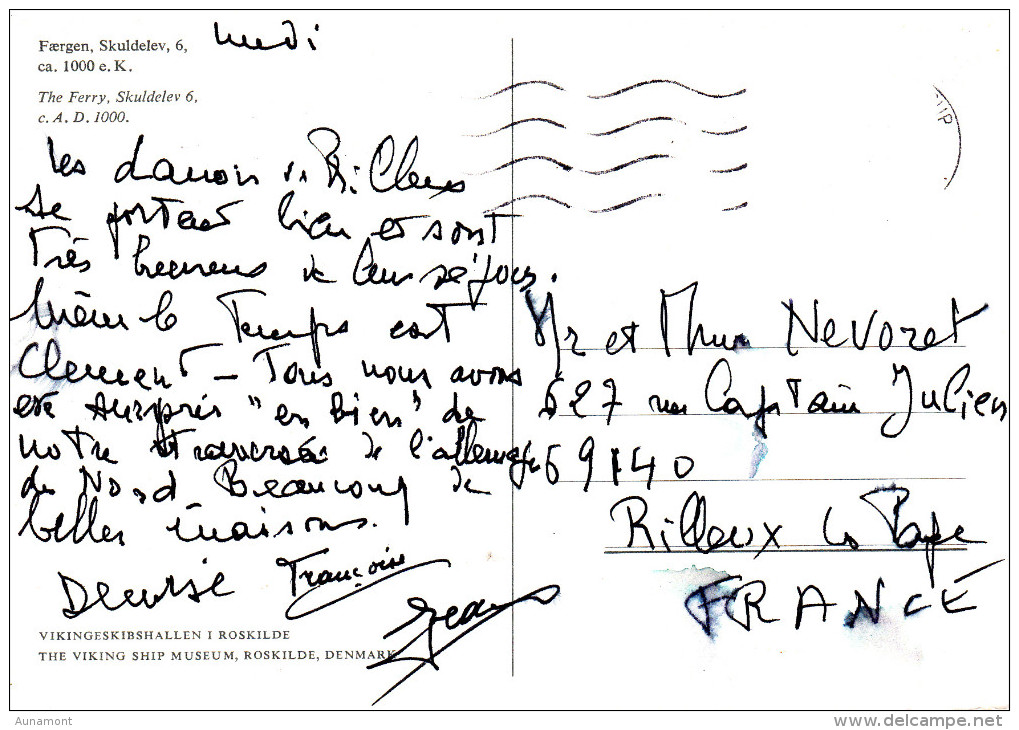 Færgen, Skuldelev, 6,
ca. 1000 e. K.
The Ferry, Skuldelev 6,
c. A. D. 1000.
Les danois de
se portent bien et sont
Très heureux de leur séjour.
Même le Temps est
Clement - Tous nous avons
été surpris "en bien" de
notre traversée de l'allemagne
du Nord Beaucoup de
belles maisons.
Denise Françoise
Jean
VIKINGESKIBSHALLEN I ROSKILDE
THE VIKING SHIP MUSEUM, ROSKILDE, DENMARK
Mr et Mme Nevoret
627 rue Capitain Julien
69140
Rilleux la Pape
FRANCE
Aunamont
www.delcampe.net